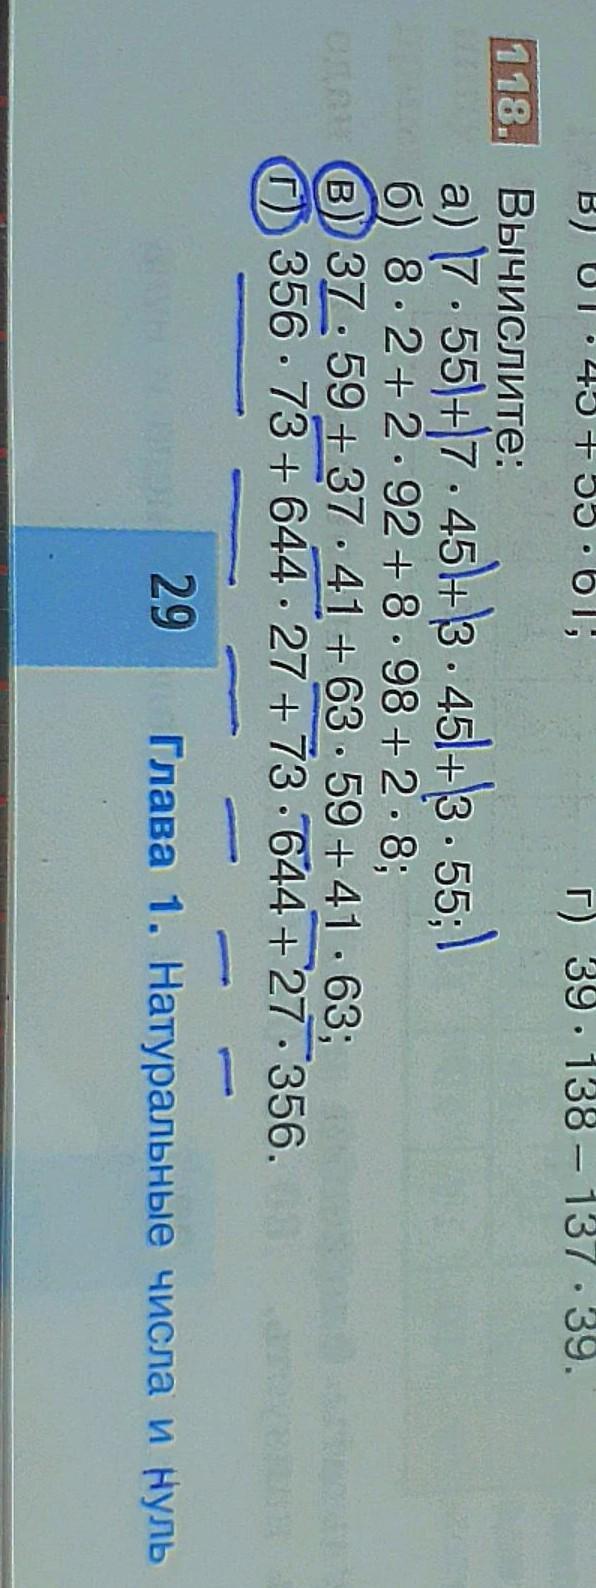 в) 61 · 45 + 55 · 61;
г) 39 · 138 – 137 · 39.
118. Вычислите:
а) 7 · 55 + 7 · 45 + 3 · 45 + 3 · 55;
б) 8 · 2 + 2 · 92 + 8 · 98 + 2 · 8;
в) 37 · 59 + 37 · 41 + 63 · 59 + 41 · 63;
г) 356 · 73 + 644 · 27 + 73 · 644 + 27 · 356.
29 Глава 1. Натуральные числа и нуль